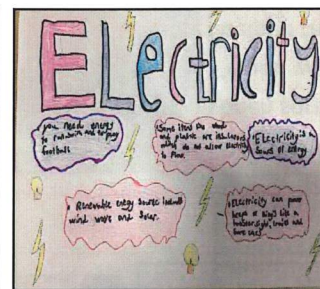 ELectricity
you need energy
to run and enjoy
football
Some items like wood
and plastic are insulators
which do not allow electricity
to flow.
ELectricity is a
source of energy
Renewable energy source include
wind wave and Solar.
electricity can power
heaps of things like a
toaster, light, trains and